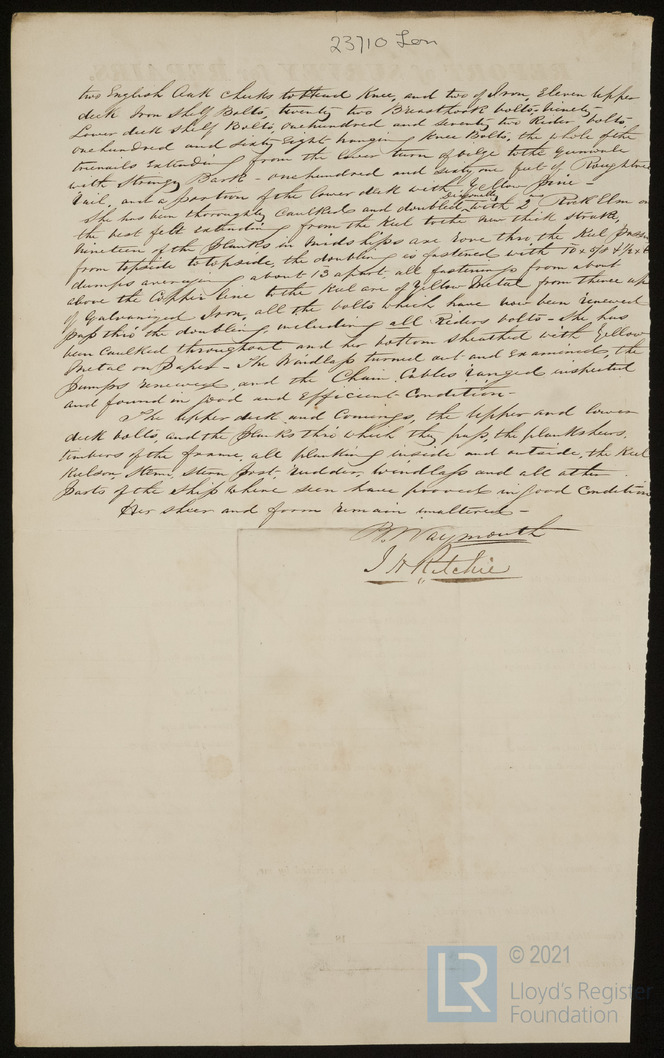 23710 Lon
two English Oak Cheeks to Head Knee, and two of Iron, Eleven Upper
deck Iron Shelf Bolts, twenty two Breasthook bolts, Ninety
Lower deck Shelf Bolts, one hundred and seventy two Rider bolts,
one hundred and sixty Eight hanging Knee Bolts, the whole of the
trenails Extending from the lower turn of bilge to the Gunwale
with Stringy Bark - one hundred and sixty one feet of Roughtree
Rail, and a portion of the lower deck with Yellow Pine -
She has been thoroughly Caulked and doubled diagonally with 2 in Rock Elm on
the best felt extending from the Keel to the new thick strake,
Nineteen of the planks in Midships are hove thro the Keel passing
from topside to topside, the doubling is fastened with 10 x 5/8 & 1/2 x 6
dumps averaging about 13 apart, all fastenings from about
above the Copper line to the Keel are of Yellow Metal from thence up
of Galvanized Iron, all the bolts which have now been renewed
pass thro the doubling, including all Riders bolts - She has
been Caulked throughout and her bottom sheathed with Yellow
Metal on Paper - The Windlass turned out and Examined, the
Pumps renewed, and the Chain Cables ranged inspected
and found in good and Efficient Condition -
The Upper deck and Comings, the Upper and lower
deck bolts, and the planks thro which they pass, the planksheers,
timbers of the frame, all planking inside and outside, the Keel
Kelson, Stem, Stern post, Rudder, Windlass and all other
Parts of the Ship where seen have proved in good Condition
Her sheer and form remain unaltered -
B. Waymouth
J H Ritchie
LR
© 2021
Lloyd's Register
Foundation